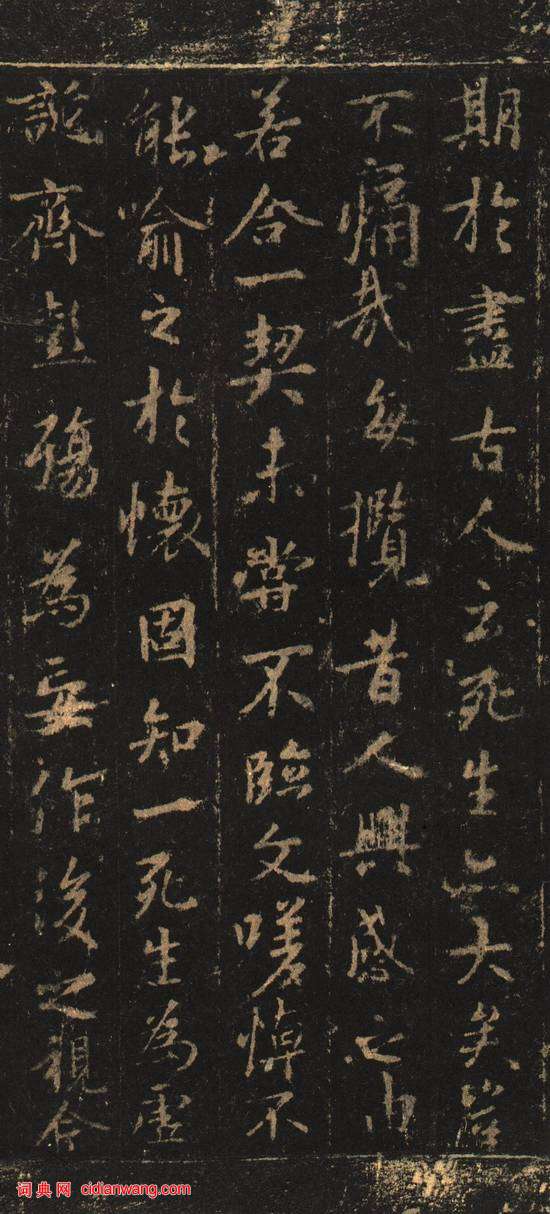 期於盡古人云死生亦大矣豈
不痛哉每攬昔人興感之由
若合一契未嘗不臨文嗟悼不
能喻之於懷固知一死生為虛
誕齊彭殤為妄作後之視今
词典网 cidianwang.com